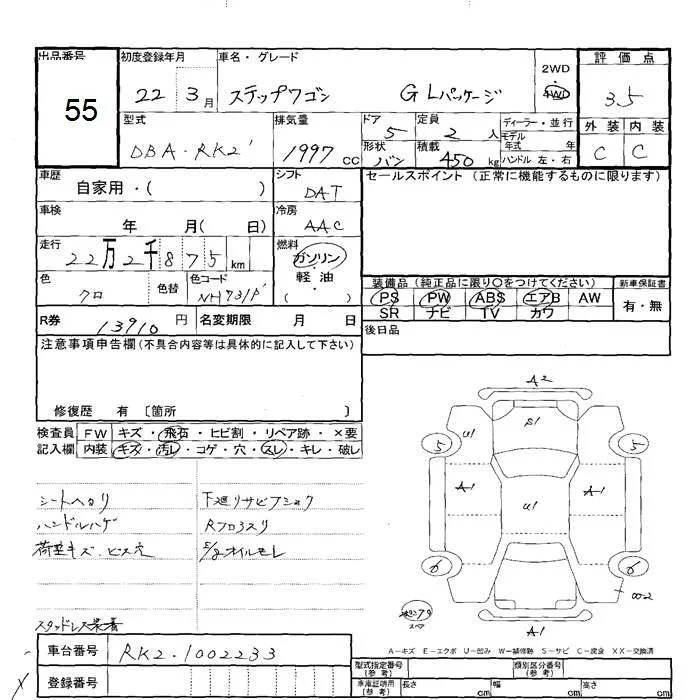 出品番号 初度登録年月 車名・グレード 評価点
55
22 3月 ステップワゴン G Lパッケージ 2WD 4WD 3.5
型式 排気量 ドア 定員 ディーラー・並行 外装 内装
DBA・RK2 1997cc 5 2人 モデル年式 年 C C
形状 バン 積載 450kg ハンドル 左・右
車歴 自家用・( ) シフト DAT セールスポイント (正常に機能するものに限ります)
車検 年 月( 日) 冷房 AAC
走行 22万2千875km 燃料 ガソリン・軽油・( )
色 クロ 色替 色コード NH731P
装備品(純正品に限り○をつけてください) 新車保証書
PS PW ABS エアB AW 有・無
SR ナビ TV カワ
R券 13910円 名変期限 月 日 後日品
注意事項申告欄(不具合内容等は具体的に記入して下さい)
修復歴 有 〔箇所 〕
検査員記入欄 FW キズ・飛石・ヒビ割・リペア跡・×要
内装 キズ・汚レ・コゲ・穴・スレ・キレ・破レ
シートヘタリ 下廻リサビフショク
ハンドルハゲ Rフロアスリ
荷室キズ・ビス穴 オイルモレ
スタッドレス装着
A2
S1
U1
5 5
A1 U1 A1
6 6
A1
A-キズ E-エクボ U-凹み W-補修跡 S-サビ C-腐食 XX-交換済
車台番号 RK2-1002233
登録番号
型式指定番号(参考) 類別区分番号(参考)
車庫証明用(参考) 長さ cm 幅 cm 高さ cm